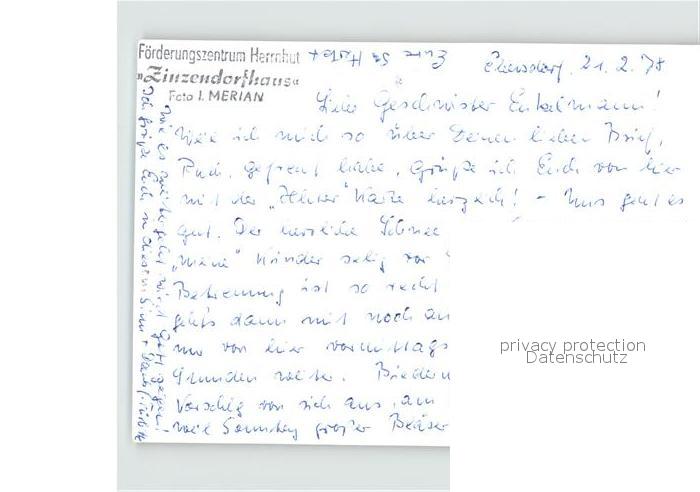 Förderungszentrum Herrnhut
"Zinzendorfhaus"
Foto I. MERIAN
Ebersdorf, 21.2.78
Liebe Geschwister Enkelmann!
Weil ich mich so über Deinen lieben Brief,
gefreut habe, grüße ich Euch von hier
mit der Karte herzlich! - Uns geht es
gut. Der herrliche Schnee
"meine" Kinder selig
Betreuung ist so recht
geht's dann mit noch
nur von hier vormittags
Stunden weiter.
Vorschlag von sich aus, am
weil Sonntag großer Bläser
Wie es weiter geht wird Gott zeigen!
Ich grüße Euch in diesem Sinn
privacy protection
Datenschutz